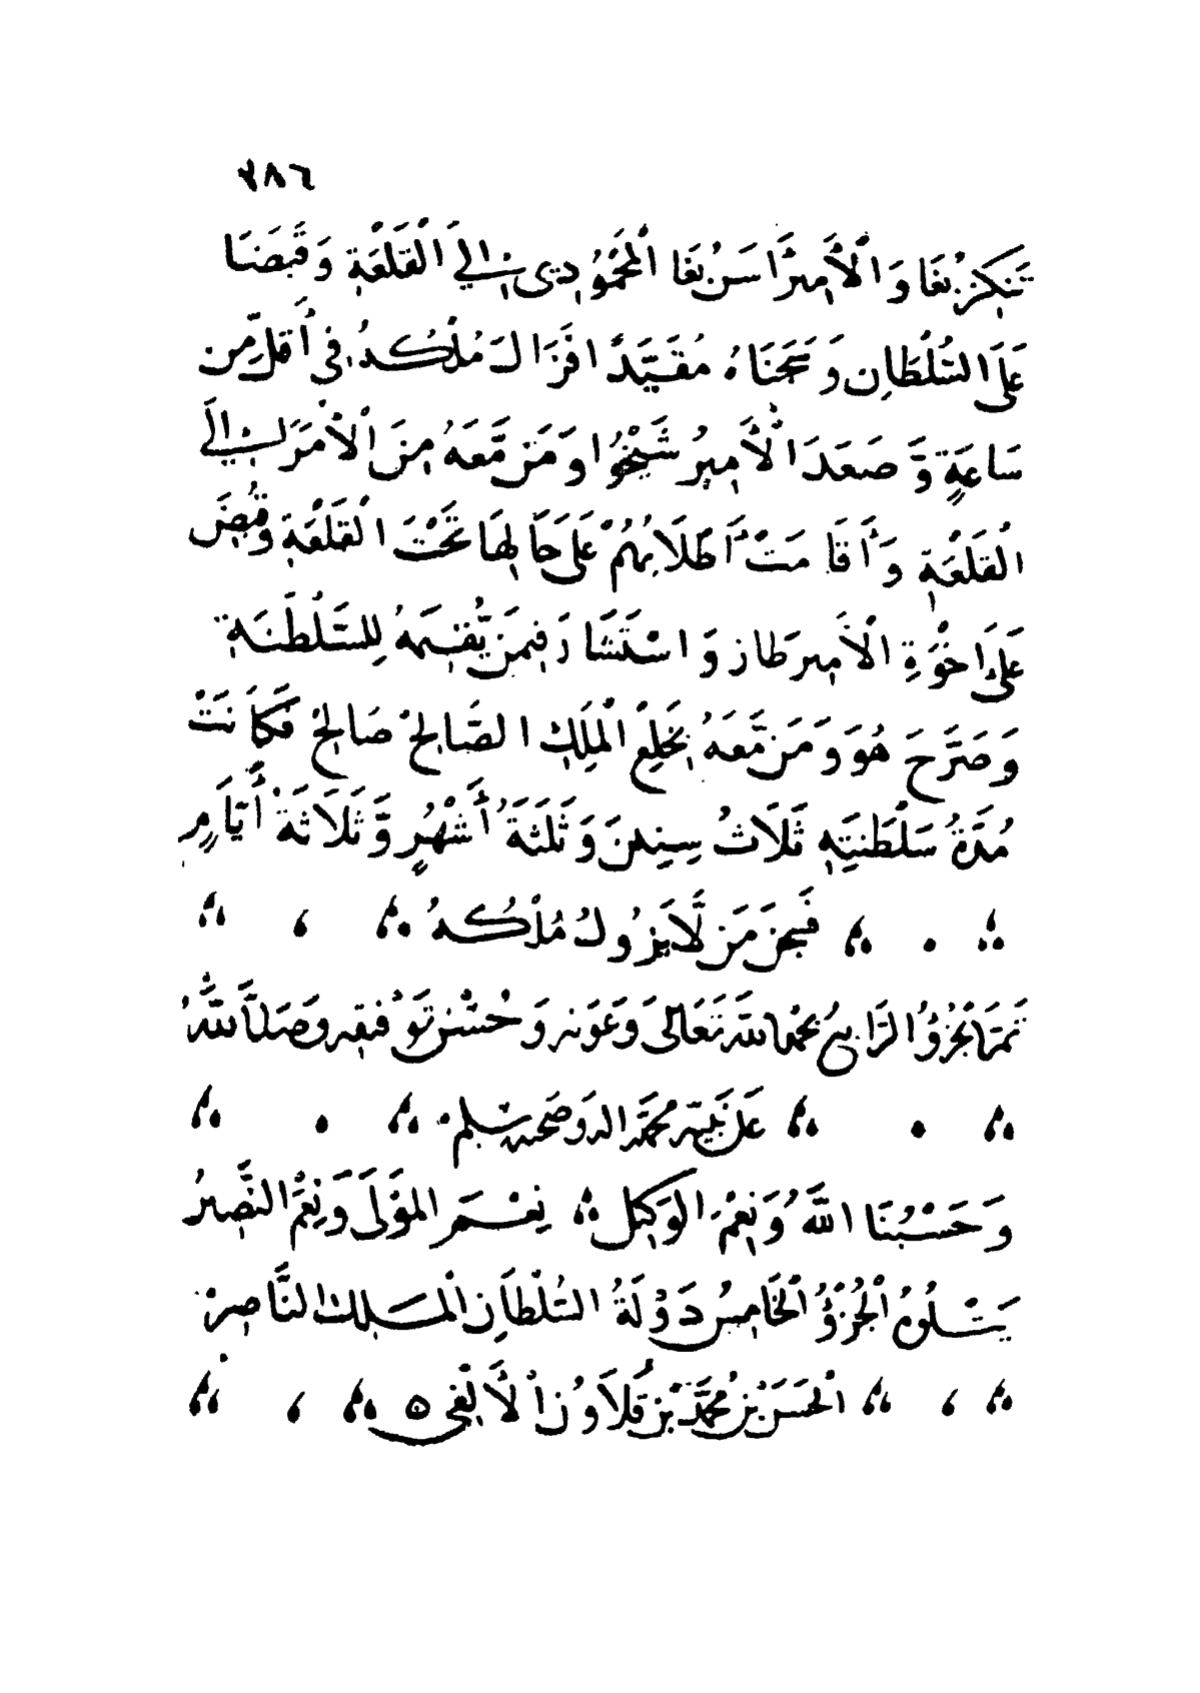 ٢٨٦
تَنْكِزْبُغَا وَالْأَمِيرُ أَسَنْبُغَا الْمَحْمُودِيّ إِلَى الْقَلْعَةِ وَقَبَضَا
عَلَى السُّلْطَانِ وَسَجَنَاهُ مُقَيَّدًا فَزَالَ مُلْكُهُ فِي أَقَلَّ مِنْ
سَاعَةٍ وَّصَعَدَ الْأَمِيرُ شَيْخُوا وَمَنْ مَّعَهُ مِنَ الْأُمَرَاءِ إِلَى
الْقَلْعَةِ وَأَقَامَتْ أَطْلَابُهُمْ عَلَى حَالِهَا تَحْتَ الْقَلْعَةِ وَقُبِضَ
عَلَى إِخْوَةِ الْأَمِيرِ طَاز وَاسْتَشَارَ فِيمَنْ يُّقِيمَهُ لِلسَّلْطَنَةِ
وَصَرَّحَ هُوَ وَمَنْ مَّعَهُ بِخَلْعِ الْمَلِكِ الصَّالِحْ صَالِحْ فَكَانَتْ
مُدَّةُ سَلْطَنَتِهِ ثَلَاثُ سِنِينَ وَثَلٰثَةَ أَشْهُرٍ وَّثَلَاثَةَ أَيَّامٍ
فَسُبْحٰنَ مَنْ لَّا يَزُولُ مُلْكُهُ
تَمَّ الْجُزْؤُ الرَّابِعُ بِحَمْدِ اللّٰهِ تَعَالَى وَعَوْنِهِ وَحُسْنِ تَوْفِيقِهِ وَصَلَّى اللّٰهُ
عَلَى نَبِيِّهِ مُحَمَّدٍ وَآلِهِ وَصَحْبِهِ وَسَلَّمَ
وَحَسْبُنَا اللّٰهُ وَنِعْمَ الْوَكِيلُ نِعْمَ الْمَوْلَى وَنِعْمَ النَّصِيرُ
يَتْلُوهُ الْجُزْؤُ الْخَامِسُ دَوْلَةُ السُّلْطَانِ الْمَلِكِ النَّاصِرْ
الْحَسَنْ بْنُ مُحَمَّدْ بْنِ قَلَاوُنْ الْأَلْفِي ٥